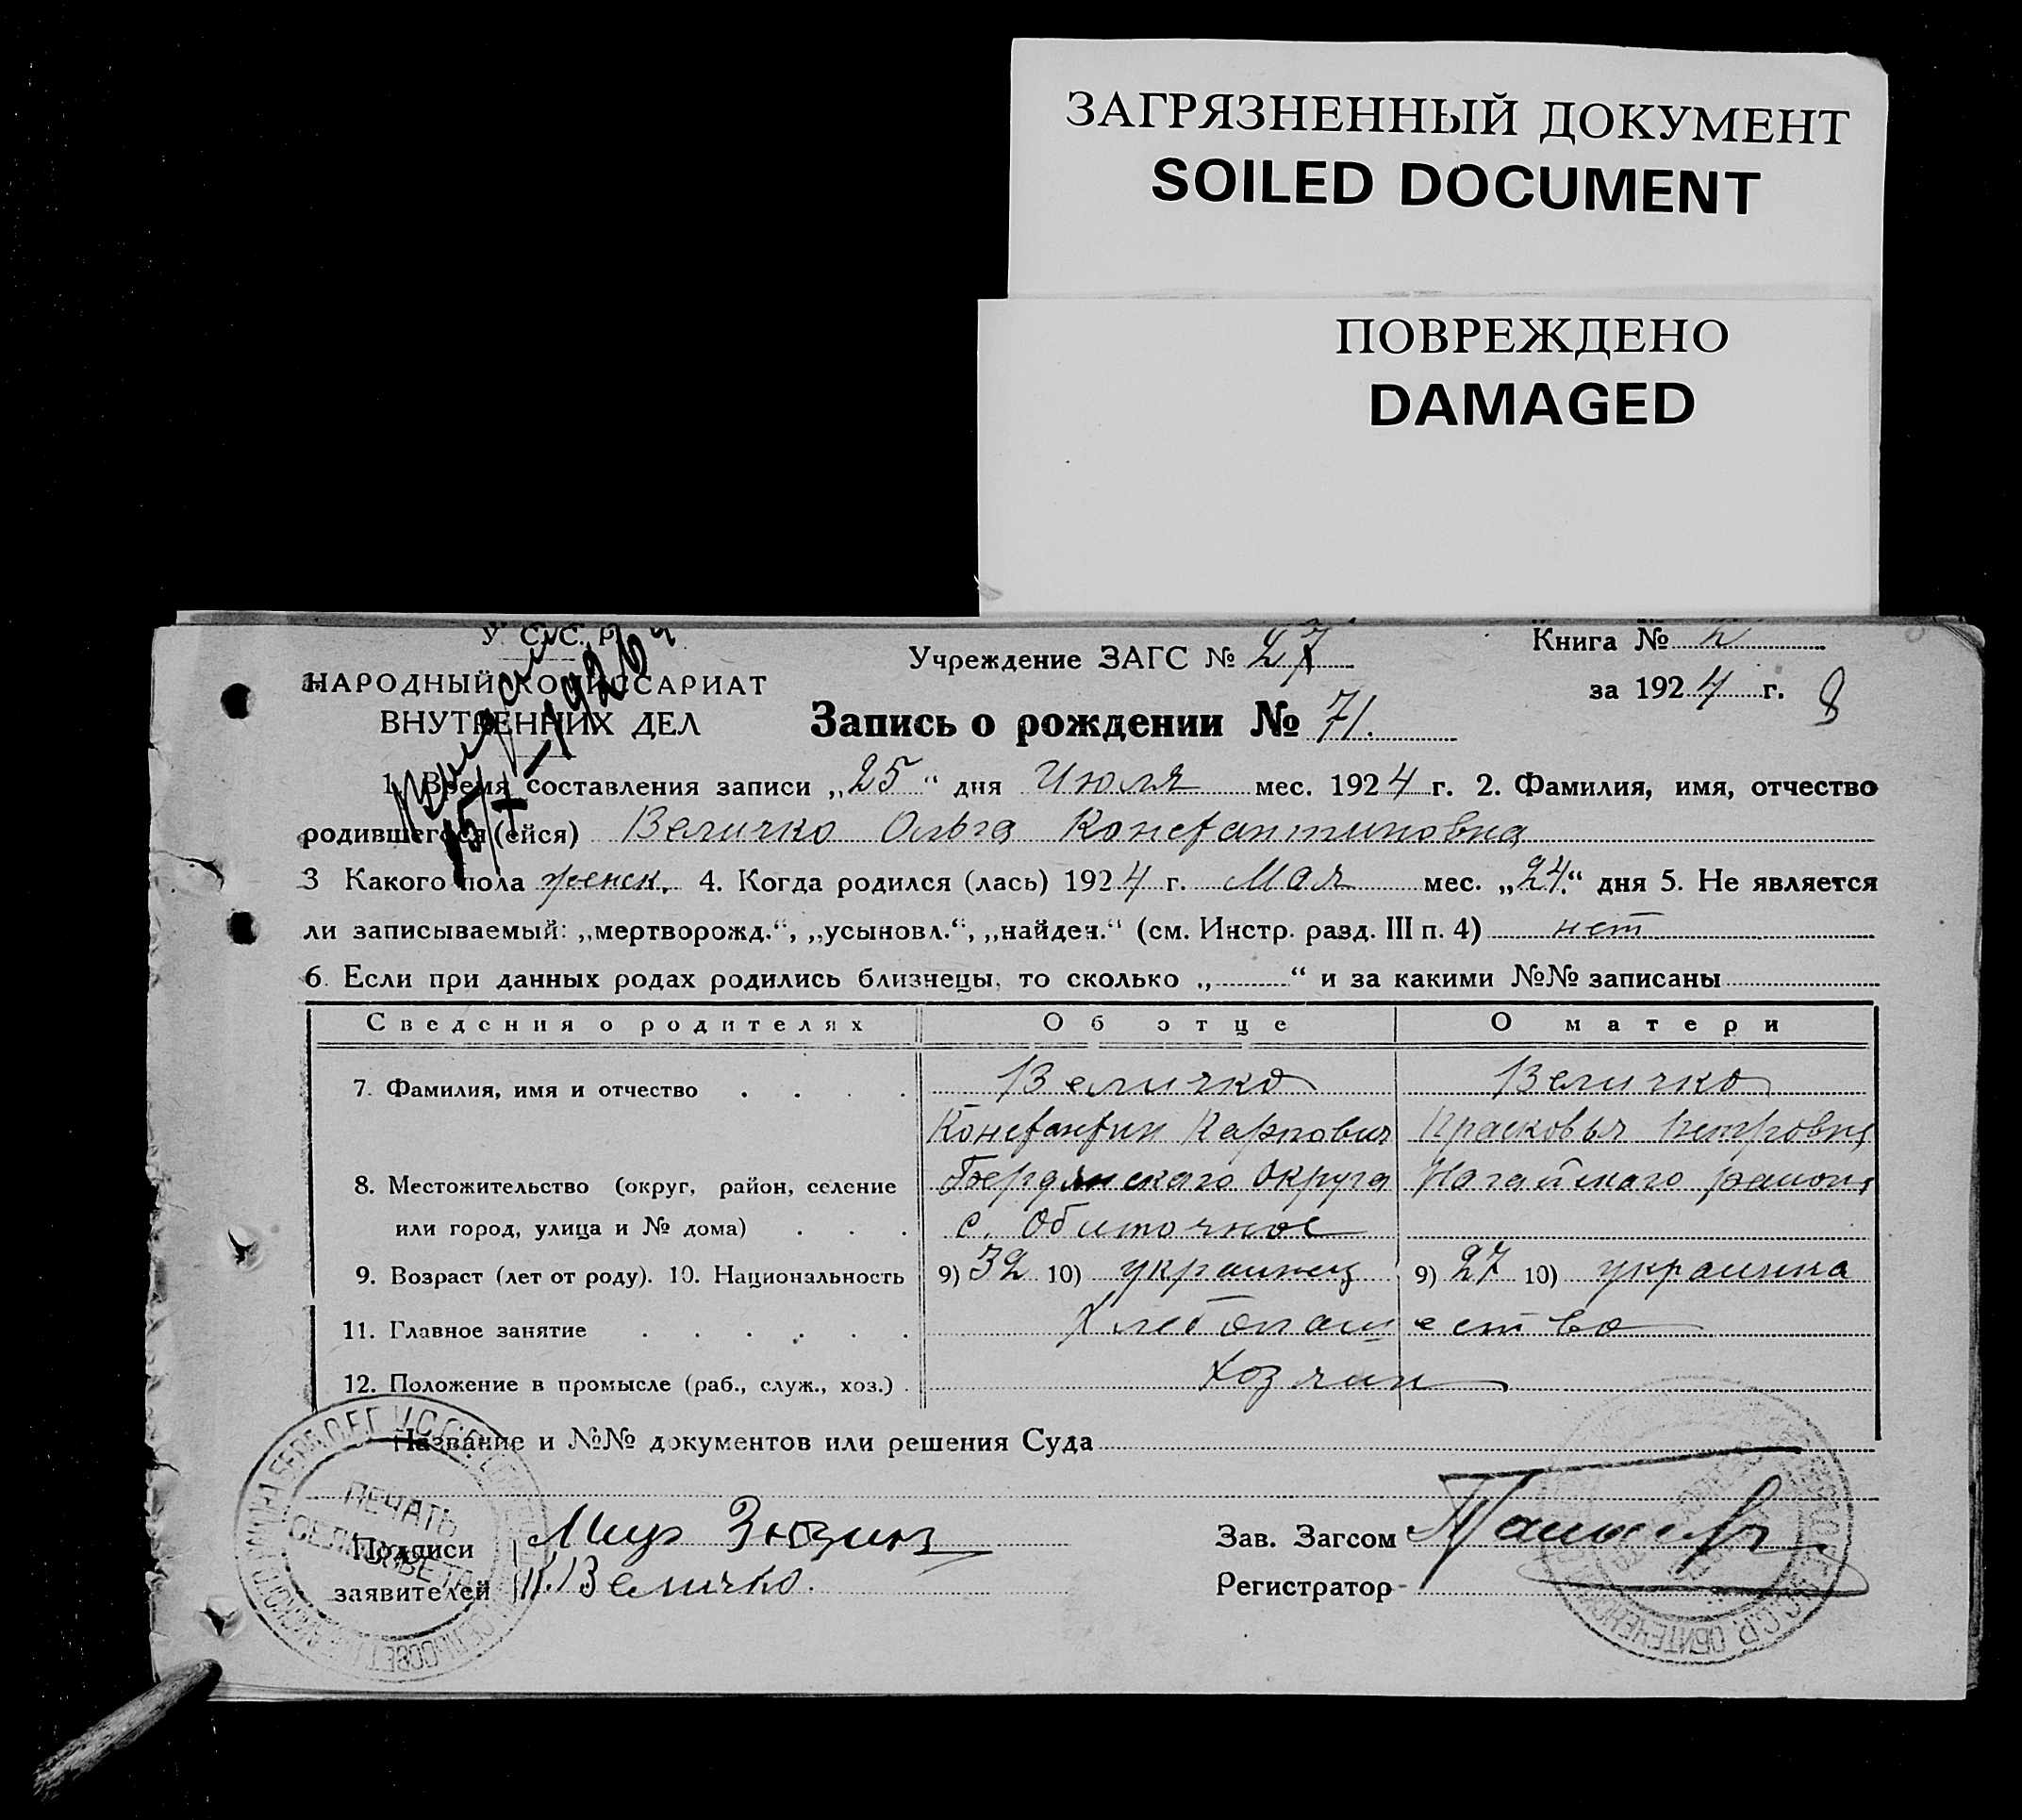 ЗАГРЯЗНЕННЫЙ ДОКУМЕНТ
SOILED DOCUMENT
ПОВРЕЖДЕНО
DAMAGED
У. С. С. Р.
НАРОДНЫЙ КОМИССАРИАТ
ВНУТРЕННИХ ДЕЛ
15/X-1926
Учреждение ЗАГС № 27
Книга № 2
за 1924 г. 8
Запись о рождении № 71.
1. Время составления записи „25“ дня Июля мес. 1924 г. 2. Фамилия, имя, отчество
родившегося (ейся) Величко Ольга Константиновна
3 Какого пола женск. 4. Когда родился (лась) 1924 г. Мая мес. „24.“ дня 5. Не является
ли записываемый: „мертворожд.“, „усыновл.“, „найден.“ (см. Инстр. разд. III п. 4) нет
6. Если при данных родах родились близнецы, то сколько „ “ и за какими №№ записаны
Сведения о родителях Об отце О матери
7. Фамилия, имя и отчество . . . . Величко Величко
Константин Карпович Прасковья Петровна
8. Местожительство (округ, район, селение Бердянскаго Округа Ногайскаго района
или город, улица и № дома) . . . с. Обиточное
9. Возраст (лет от роду). 10. Национальность 9) 32 10) украинец 9) 27 10) украинка
11. Главное занятие . . . . . . Хлебопашество
12. Положение в промысле (раб., служ., хоз.) . Хозяин
Название и №№ документов или решения Суда
ПЕЧАТЬ
СЕЛЬСОВЕТА
Подписи
заявителей К. Величко.
Зав. Загсом
Регистратор